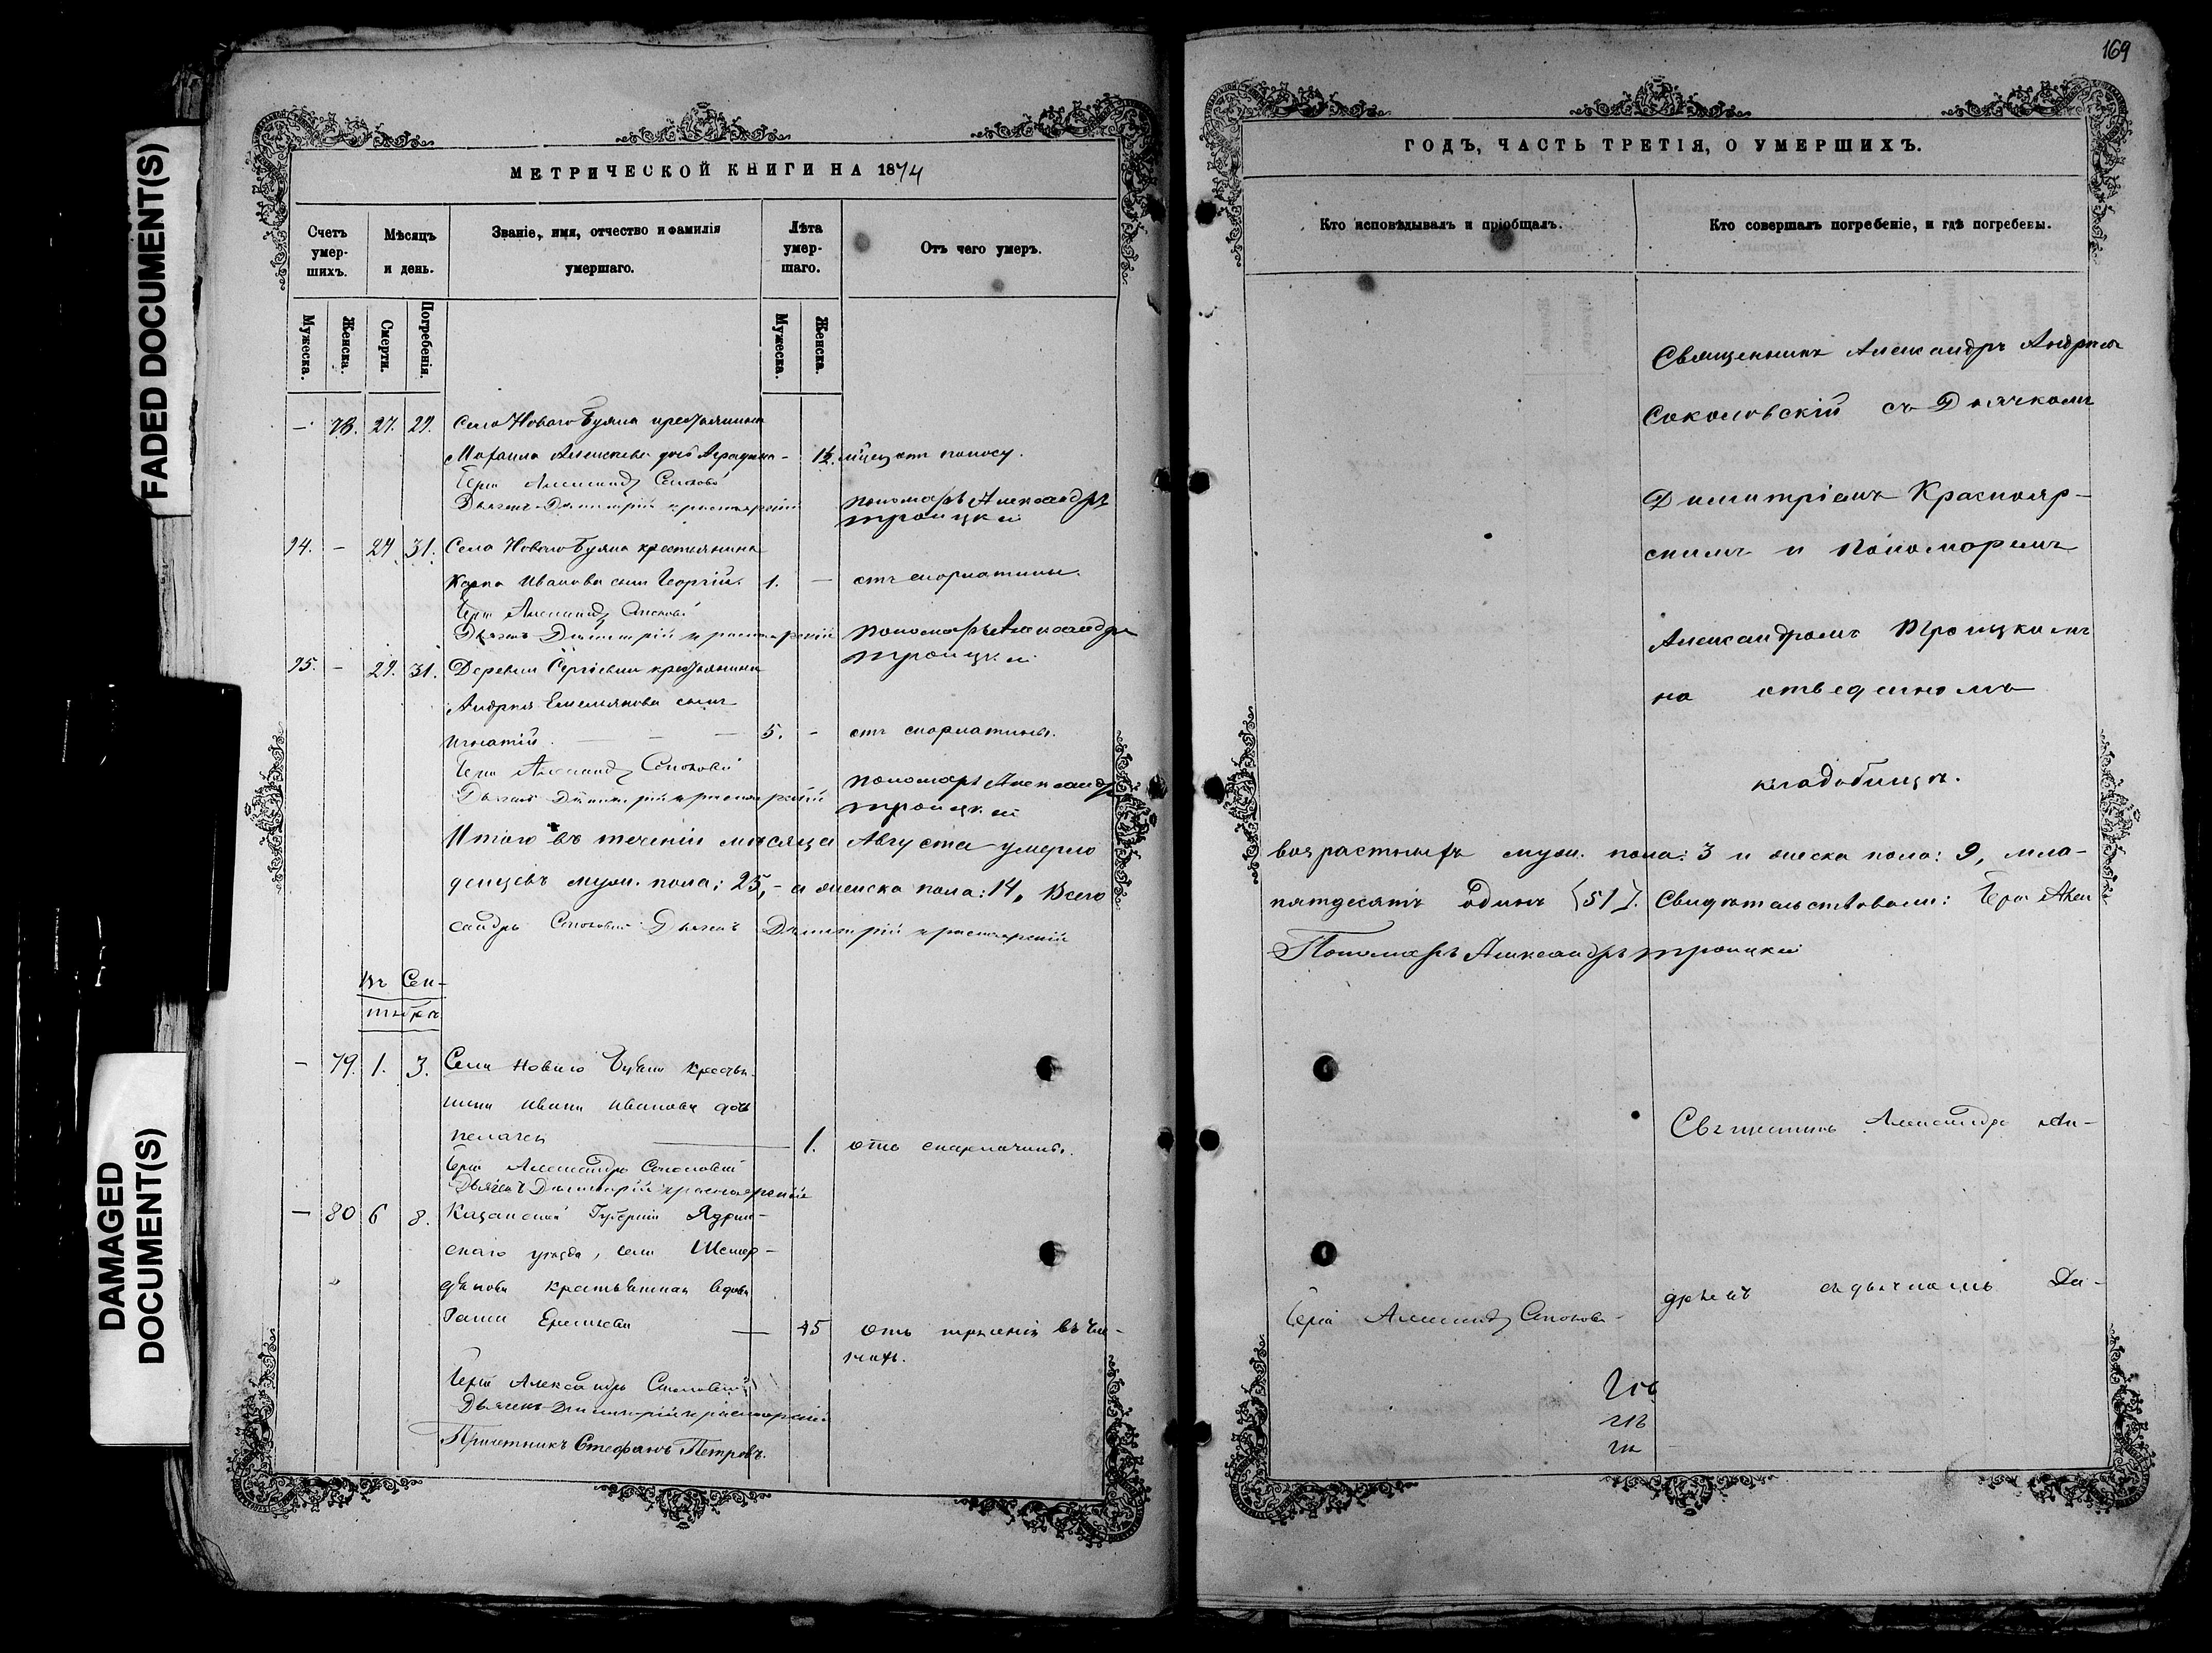 FADED DOCUMENT(S)
DAMAGED
DOCUMENT(S)
МЕТРИЧЕСКОЙ КНИГИ НА 1874
Счетъ умер-шихъ.
Мѣсяцъ и день.
Званіе, имя, отчество и фамилія умершаго.
Лѣта умер-шаго.
Отъ чего умеръ.
Мужеска.
Женска.
Смерти.
Погребенія.
Мужеска.
Женска.
— 78. 27. 29. Села Новаго Буяна крестьянина
Михаила Алексѣева дочь
поносу.
Іерей Александръ Соколовскій
Дьячекъ Димитрій Красноярскій
Пономарь Александръ
Троицкій
94. — 29 31. Села Новаго Буяна крестьянина
Карпа Иванова сынъ Георгій. 1. — отъ скорлатины.
Іерей Александръ Соколовскій
Дьячекъ Димитрій Красноярскій
Пономарь Александръ
Троицкій
95. — 29. 31. Деревни Сергіевки крестьянина
Андрея Емельянова сынъ
Игнатій. — — — 5. — отъ скорлатины.
Іерей Александръ Соколовскій
Дьячекъ Димитрій Красноярскій
Пономарь Александръ
Троицкій
Итого въ теченіи мѣсяца Августа умерло
денцевъ муж. пола: 25, — а женска пола: 14, Всего
сандръ Соколовскій Дьячекъ Димитрій Красноярскій
Въ Сен-
тябрѣ
— 79. 1. 3. Села Новаго Буяна крестья-
нина Ивана Иванова дочь
Пелагея — 1. отъ скарлатины.
Іерей Александръ Соколовскій
Дьячекъ Димитрій Красноярскій
— 80 6 8. Казанской Губерніи Ядрин-
скаго уѣзда, села
крестьянская вдова
— 45 отъ
Іерей Александръ Соколовскій
Дьячекъ Димитрій Красноярскій
Причетникъ Стефанъ Петровъ.
169
ГОДЪ, ЧАСТЬ ТРЕТІЯ, О УМЕРШИХЪ.
Кто исповѣдывалъ и пріобщалъ.
Кто совершалъ погребеніе, и гдѣ погребены.
Священникъ Александръ Андреевъ
Соколовскій съ Дьячкомъ
Димитріемъ Краснояр-
скимъ и Пономаремъ
Александромъ Троицкимъ
на отведенномъ
кладбищѣ.
возрастныхъ муж. пола: 3 и женска пола: 9, мла-
пятдесятъ одинъ {51}. Свидѣтельствовали: Іерей Алек
Пономарь Александръ Троицкій
Священникъ Александръ Ан-
дреевъ съ дьячкомъ Ди-
Іерей Александръ Соколов-